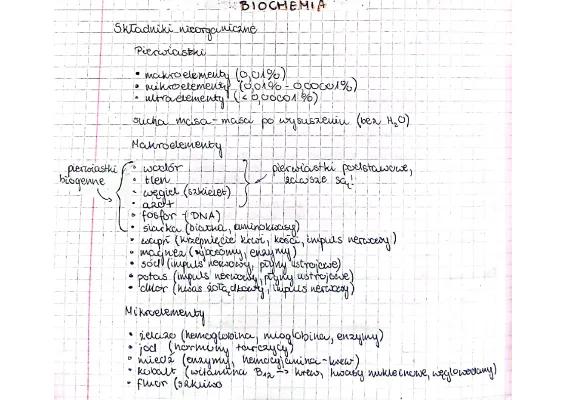 BIOCHEMIA
Składniki nieorganiczne
Pierwiastki
• makroelementy (0,01%)
• mikroelementy (0,01% - 0,00001%)
• ultraelementy (< 0,00001%)
sucha masa - masa po wysuszeniu (bez H₂O)
Makroelementy
pierwiastki biogenne
• wodór
• tlen
• węgiel (szkielet)
• azot
pierwiastki podstawowe, zawsze są!
• fosfor (DNA)
• siarka (białka, aminokwasy)
• wapń (krzepnięcie krwi, kości, impuls nerwowy)
• magnez (rybosomy, enzymy)
• sód (impuls nerwowy, płyny ustrojowe)
• potas (impuls nerwowy, płyny ustrojowe)
• chlor (kwas żołądkowy, impuls nerwowy)
Mikroelementy
• żelazo (hemoglobina, mioglobina, enzymy)
• jod (hormony tarczycy)
• miedź (enzymy, hemocyjanina - krew)
• kobalt (witamina B₁₂ → krew, kwasy nukleinowe, węglowodany)
• fluor (szkliwo